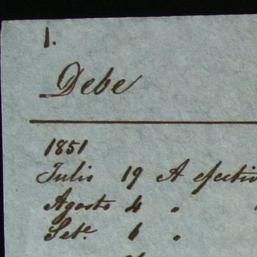 1.
Debe
1851
Julio 19 A efectiv
Agosto 4 "
Sete. 6 "